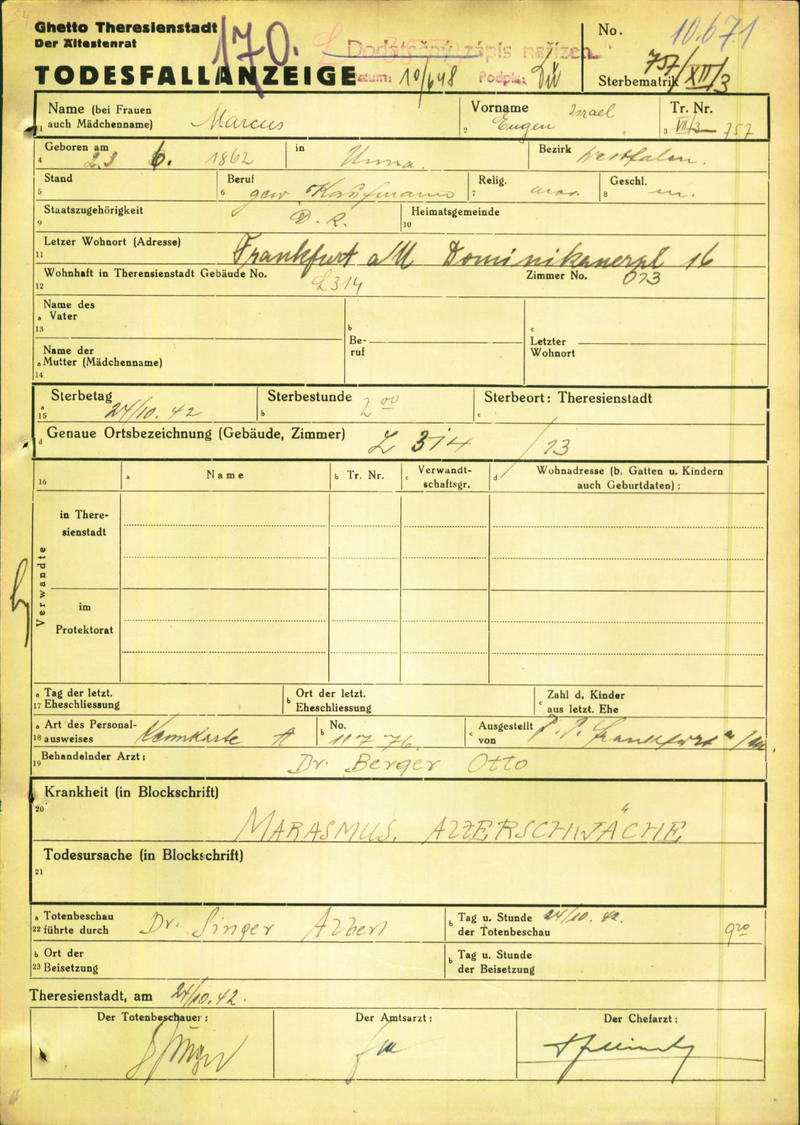 Ghetto Theresienstadt
Der Ältestenrat
170.
TODESFALLANZEIGE
Dodatečný zápis nařízen
Datum: 10/6 48 Podpis:
No. 10.671
Sterbematrik 757/XII/3
1 Name (bei Frauen auch Mädchenname) Marcus
2 Vorname Eugen Israel
3 Tr. Nr. VII/3 — 757
4 Geboren am 23 6. 1862 in Unna. Bezirk Westfalen.
5 Stand
6 Beruf gew. Kaufmann
7 Relig. mos.
8 Geschl. m.
9 Staatszugehörigkeit D. R.
10 Heimatsgemeinde
11 Letzer Wohnort (Adresse) Frankfurt a/M Dominikanerpl 16
12 Wohnhaft in Therensienstadt Gebäude No. L314 Zimmer No. 013
13 a Name des Vater
b Beruf
c Letzter Wohnort
14 a Name der Mutter (Mädchenname)
15 a Sterbetag 24/10. 42
b Sterbestunde 2 00
c Sterbeort: Theresienstadt
d Genaue Ortsbezeichnung (Gebäude, Zimmer) L 314 /13
16 a Name
b Tr. Nr.
c Verwandtschaftsgr.
d Wohnadresse (b. Gatten u. Kindern auch Geburtdaten):
Verwandte
in Theresienstadt
im Protektorat
17 a Tag der letzt. Eheschliessung
b Ort der letzt. Eheschliessung
c Zahl d. Kinder aus letzt. Ehe
18 a Art des Personalausweises Kennkarte A
b No. 11776.
c Ausgestellt von P. P. Frankfurt a/M.
19 Behandelnder Arzt: Dr. Berger Otto
20 Krankheit (in Blockschrift)
MARASMUS. ALTERSCHWÄCHE
21 Todesursache (in Blockschrift)
22 a Totenbeschau führte durch Dr. Singer Albert
b Tag u. Stunde der Totenbeschau 24/10. 42. 9 20
23 b Ort der Beisetzung
b Tag u. Stunde der Beisetzung
Theresienstadt, am 24/10. 42.
Der Totenbeschauer:
Der Amtsarzt:
Der Chefarzt: